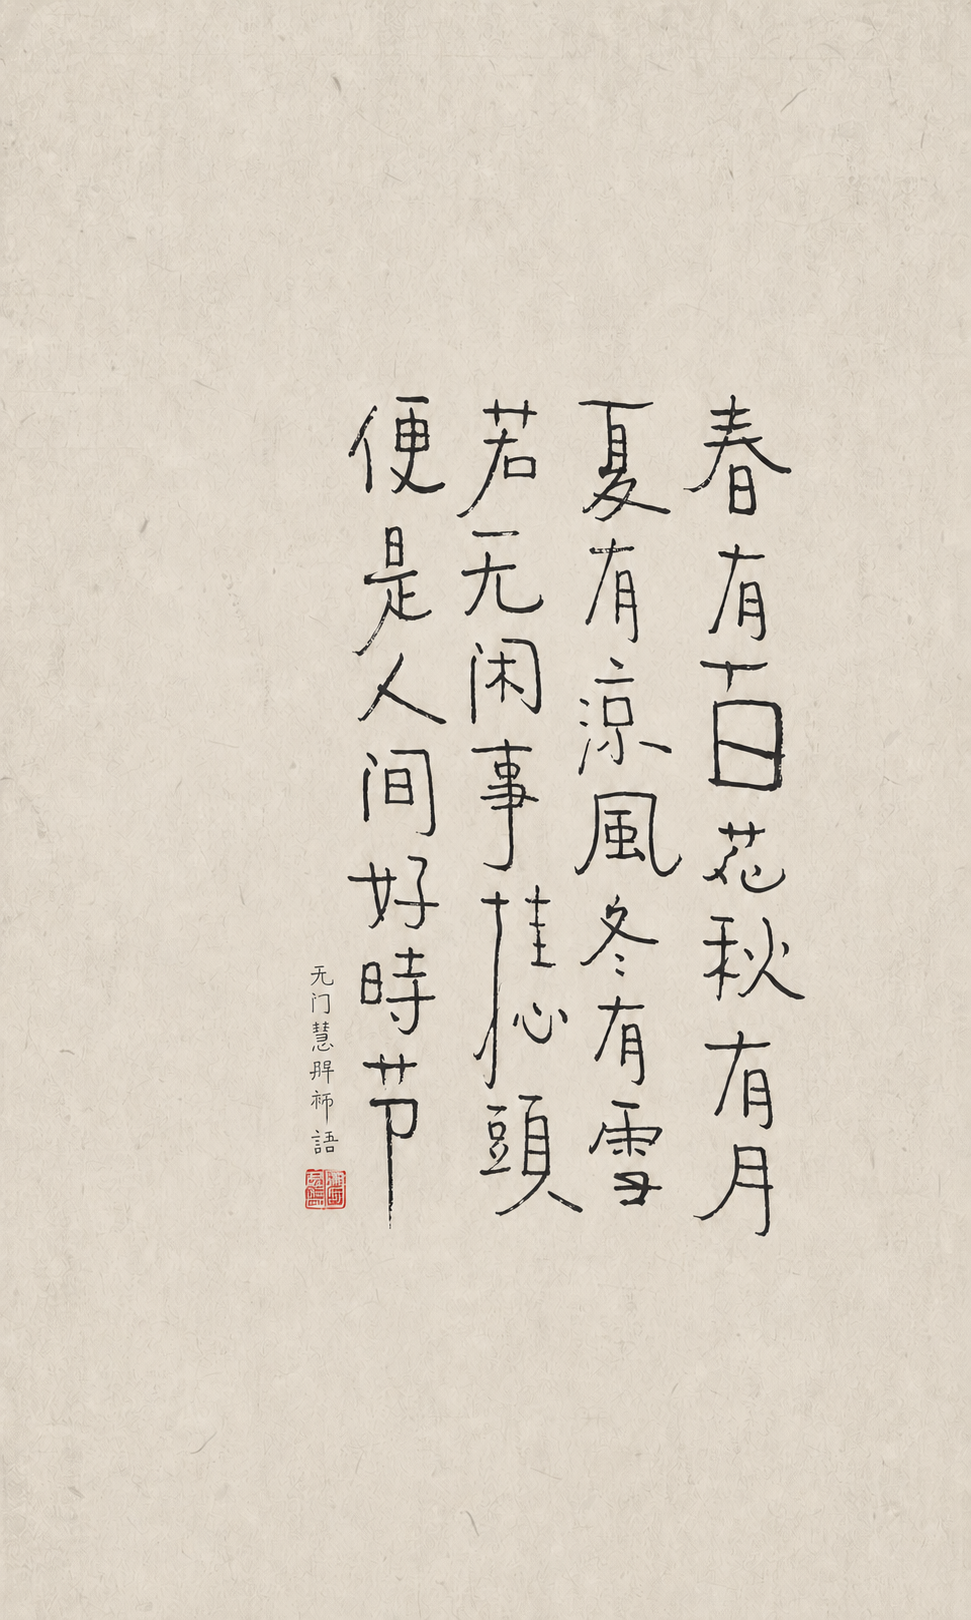 春有百花秋有月
夏有涼風冬有雪
若无闲事挂心頭
便是人间好時节
无门慧開禅師語